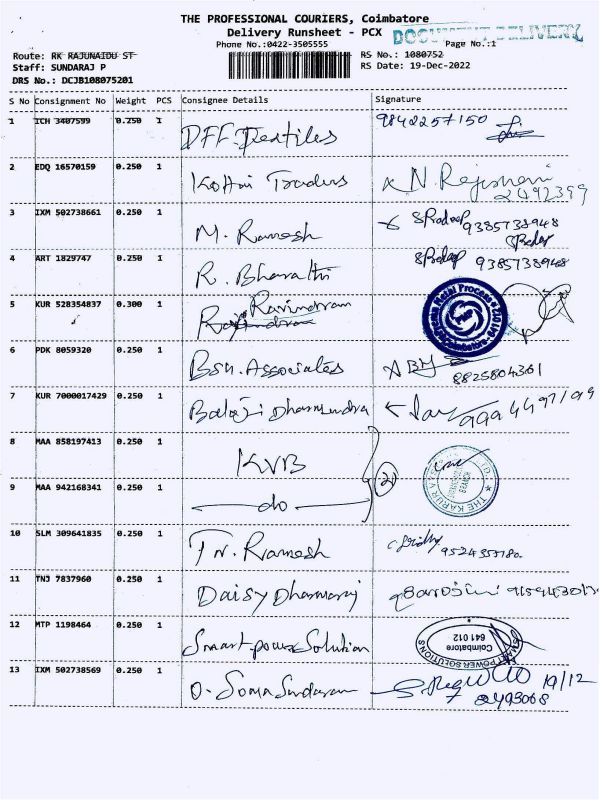 THE PROFESSIONAL COURIERS, Coimbatore
Delivery Runsheet - PCX
DOCUMENT DELIVERY
Phone No.:0422-3505555
Page No.:1
Route: RK RAJUNAIDU ST
RS No.: 1080752
Staff: SUNDARAJ P
RS Date: 19-Dec-2022
DRS No.: DCJB108075201
S No Consignment No Weight PCS Consignee Details Signature
1 ICH 3407599 0.250 1 DFF. Textiles 9842257150
2 EDQ 16570159 0.250 1 Kottai Traders N. Rajeshwari
2492399
3 IXM 502738661 0.250 1 M. Ramesh SPradeep 9385738948
SPradeep
4 ART 1829747 0.250 1 R. Bharathi SPradeep 9385738948
5 KUR 528354837 0.300 1 Ravindram
6 PDK 8059320 0.250 1 Bsn. Associates
8825804361
7 KUR 7000017429 0.250 1 Balaji Dharmendra
8 MAA 858197413 0.250 1 KVB
2
9 MAA 942168341 0.250 1 do
10 SLM 309641835 0.250 1 Tv. Ramesh
11 TNJ 7837960 0.250 1 Daisy Dharmaraj
12 MTP 1198464 0.250 1 Smart power Solution
SMART POWER SOLUTIONS
Coimbatore
641 012
13 IXM 502738569 0.250 1 O. Soma Sundaram 19/12
2493068